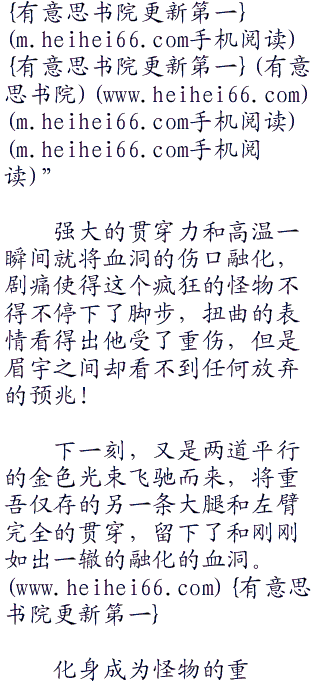 {有意思书院更新第一}
(m.heihei66.com手机阅读)
{有意思书院更新第一}(有意
思书院)(www.heihei66.com)
(m.heihei66.com手机阅读)
(m.heihei66.com手机阅
读)”
强大的贯穿力和高温一
瞬间就将血洞的伤口融化，
剧痛使得这个疯狂的怪物不
得不停下了脚步，扭曲的表
情看得出他受了重伤，但是
眉宇之间却看不到任何放弃
的预兆！
下一刻，又是两道平行
的金色光束飞驰而来，将重
吾仅存的另一条大腿和左臂
完全的贯穿，留下了和刚刚
如出一辙的融化的血洞。
(www.heihei66.com){有意思
书院更新第一}
化身成为怪物的重